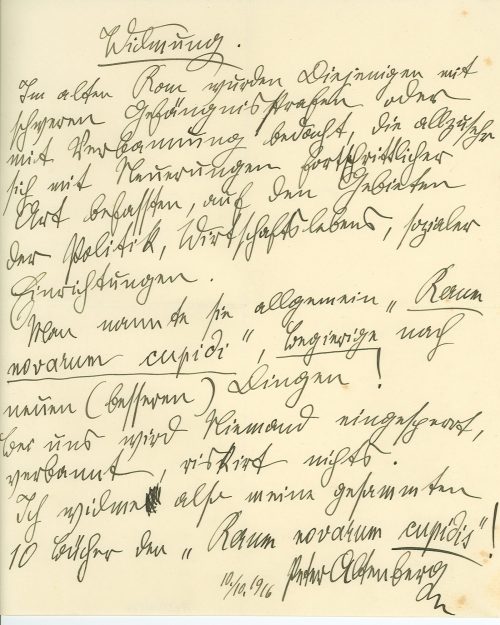 Widmung.
Im alten Rom wurden Diejenigen mit
schweren Gefängnisstrafen oder
mit Verbannung bedacht, die allzusehr
sich mit Neuerungen fortschrittlicher
Art befassten, auf den Gebieten
der Politik, Wirtschaftslebens, sozialer
Einrichtungen.
Man nannte sie allgemein „Rerum
novarum cupidi", begierige nach
neuen (besseren) Dingen!
Bei uns wird Niemand eingesperrt,
verbannt, riskirt nichts.
Ich widme also meine gesammten
10 Bücher den „Rerum novarum cupidis"!
10./10. 1916 Peter Altenberg